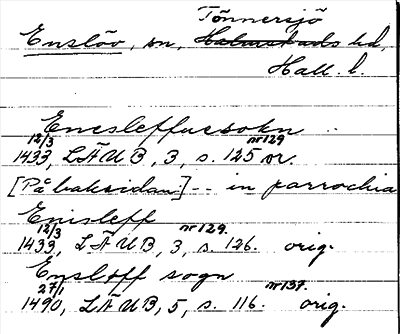 Tönnersjö
Enslöv, sn, Halmstads hd,
Hall. l.
Enesleffuesokn ..
12/3 nr 129
1433, LÄUB, 3, s. 125 or.
[På baksidan] -- in parrochia
Enisleff
12/3 nr 129.
1433, LÄUB, 3, s. 126. orig.
Enslöff sogn
27/1 nr 137.
1490, LÄUB, 5, s. 116. orig.